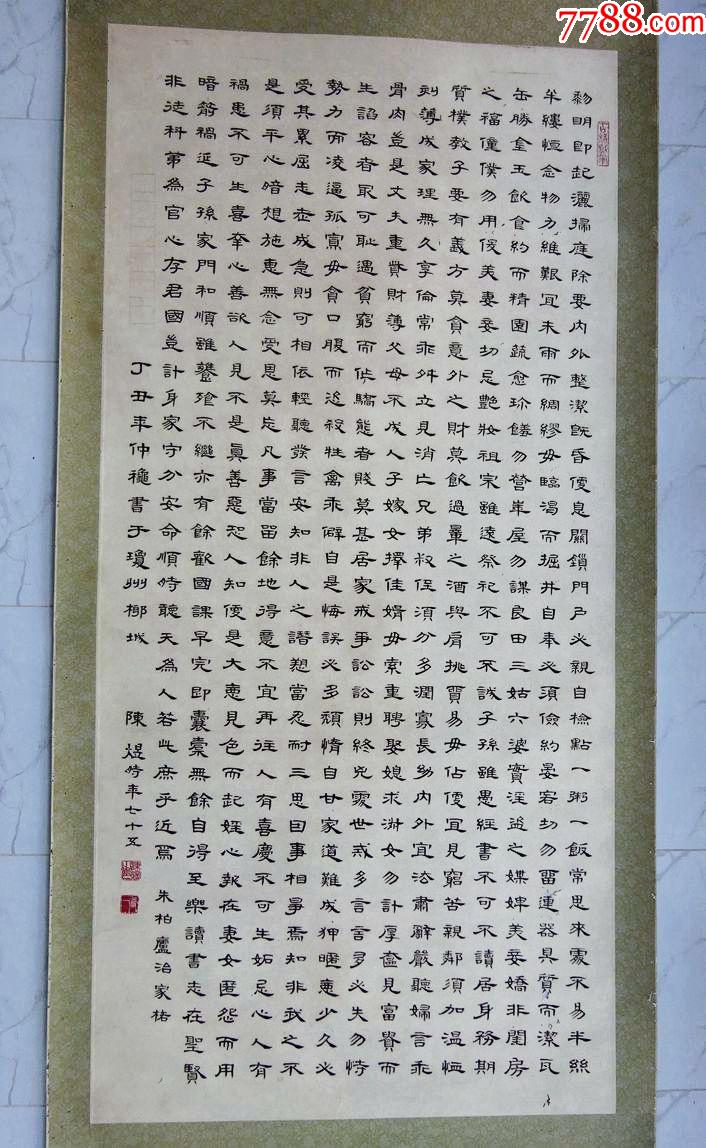 7788.com
黎明即起灑掃庭除要內外整潔既昏便息關鎖門戶必親自檢點一粥一飯當思來處不易半絲
半縷恒念物力維艱宜未雨而綢繆毋臨渴而掘井自奉必須儉約宴客切勿留連器具質而潔瓦
缶勝金玉飲食約而精園蔬愈珍饈勿營華屋勿謀良田三姑六婆實淫盜之媒婢美妾嬌非閨房
之福僮僕勿用俊美妻妾切忌艷妝祖宗雖遠祭祀不可不誠子孫雖愚經書不可不讀居身務期
質樸教子要有義方莫貪意外之財莫飲過量之酒與肩挑貿易毋佔便宜見窮苦親鄰須加溫恤
刻薄成家理無久享倫常乖舛立見消亡兄弟叔侄須分多潤寡長幼內外宜法肅辭嚴聽婦言乖
骨肉豈是丈夫重貲財薄父母不成人子嫁女擇佳婿毋索重聘娶媳求淑女勿計厚奩見富貴而
生諂容者最可恥遇貧窮而作驕態者賤莫甚居家戒爭訟訟則終凶處世戒多言言多必失勿恃
勢力而凌逼孤寡毋貪口腹而恣殺牲禽乖僻自是悔誤必多頹惰自甘家道難成狎暱惡少久必
受其累屈志老成急則可相依輕聽發言安知非人之譖愬當忍耐三思因事相爭焉知非我之不
是須平心暗想施惠無念受恩莫忘凡事當留餘地得意不宜再往人有喜慶不可生妬忌心人有
禍患不可生喜幸心善欲人見不是真善惡恐人知便是大惡見色而起婬心報在妻女匿怨而用
暗箭禍延子孫家門和順雖饔飧不繼亦有餘歡國課早完即囊橐無餘自得至樂讀書志在聖賢
非徒科第為官心存君國豈計身家守分安命順時聽天為人若此庶乎近焉 朱柏廬治家格
丁丑年仲穐書于瓊州椰城 陳煜時年七十五